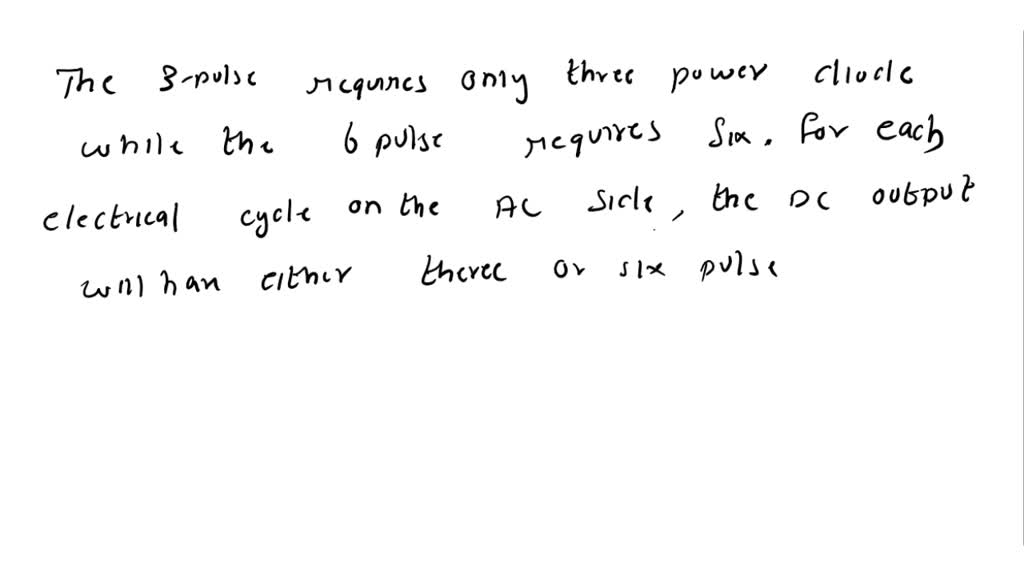 The 3-pulse requires only three power diode
while the 6 pulse requires six. For each
electrical cycle on the AC side, the DC output
will have either three or six pulse